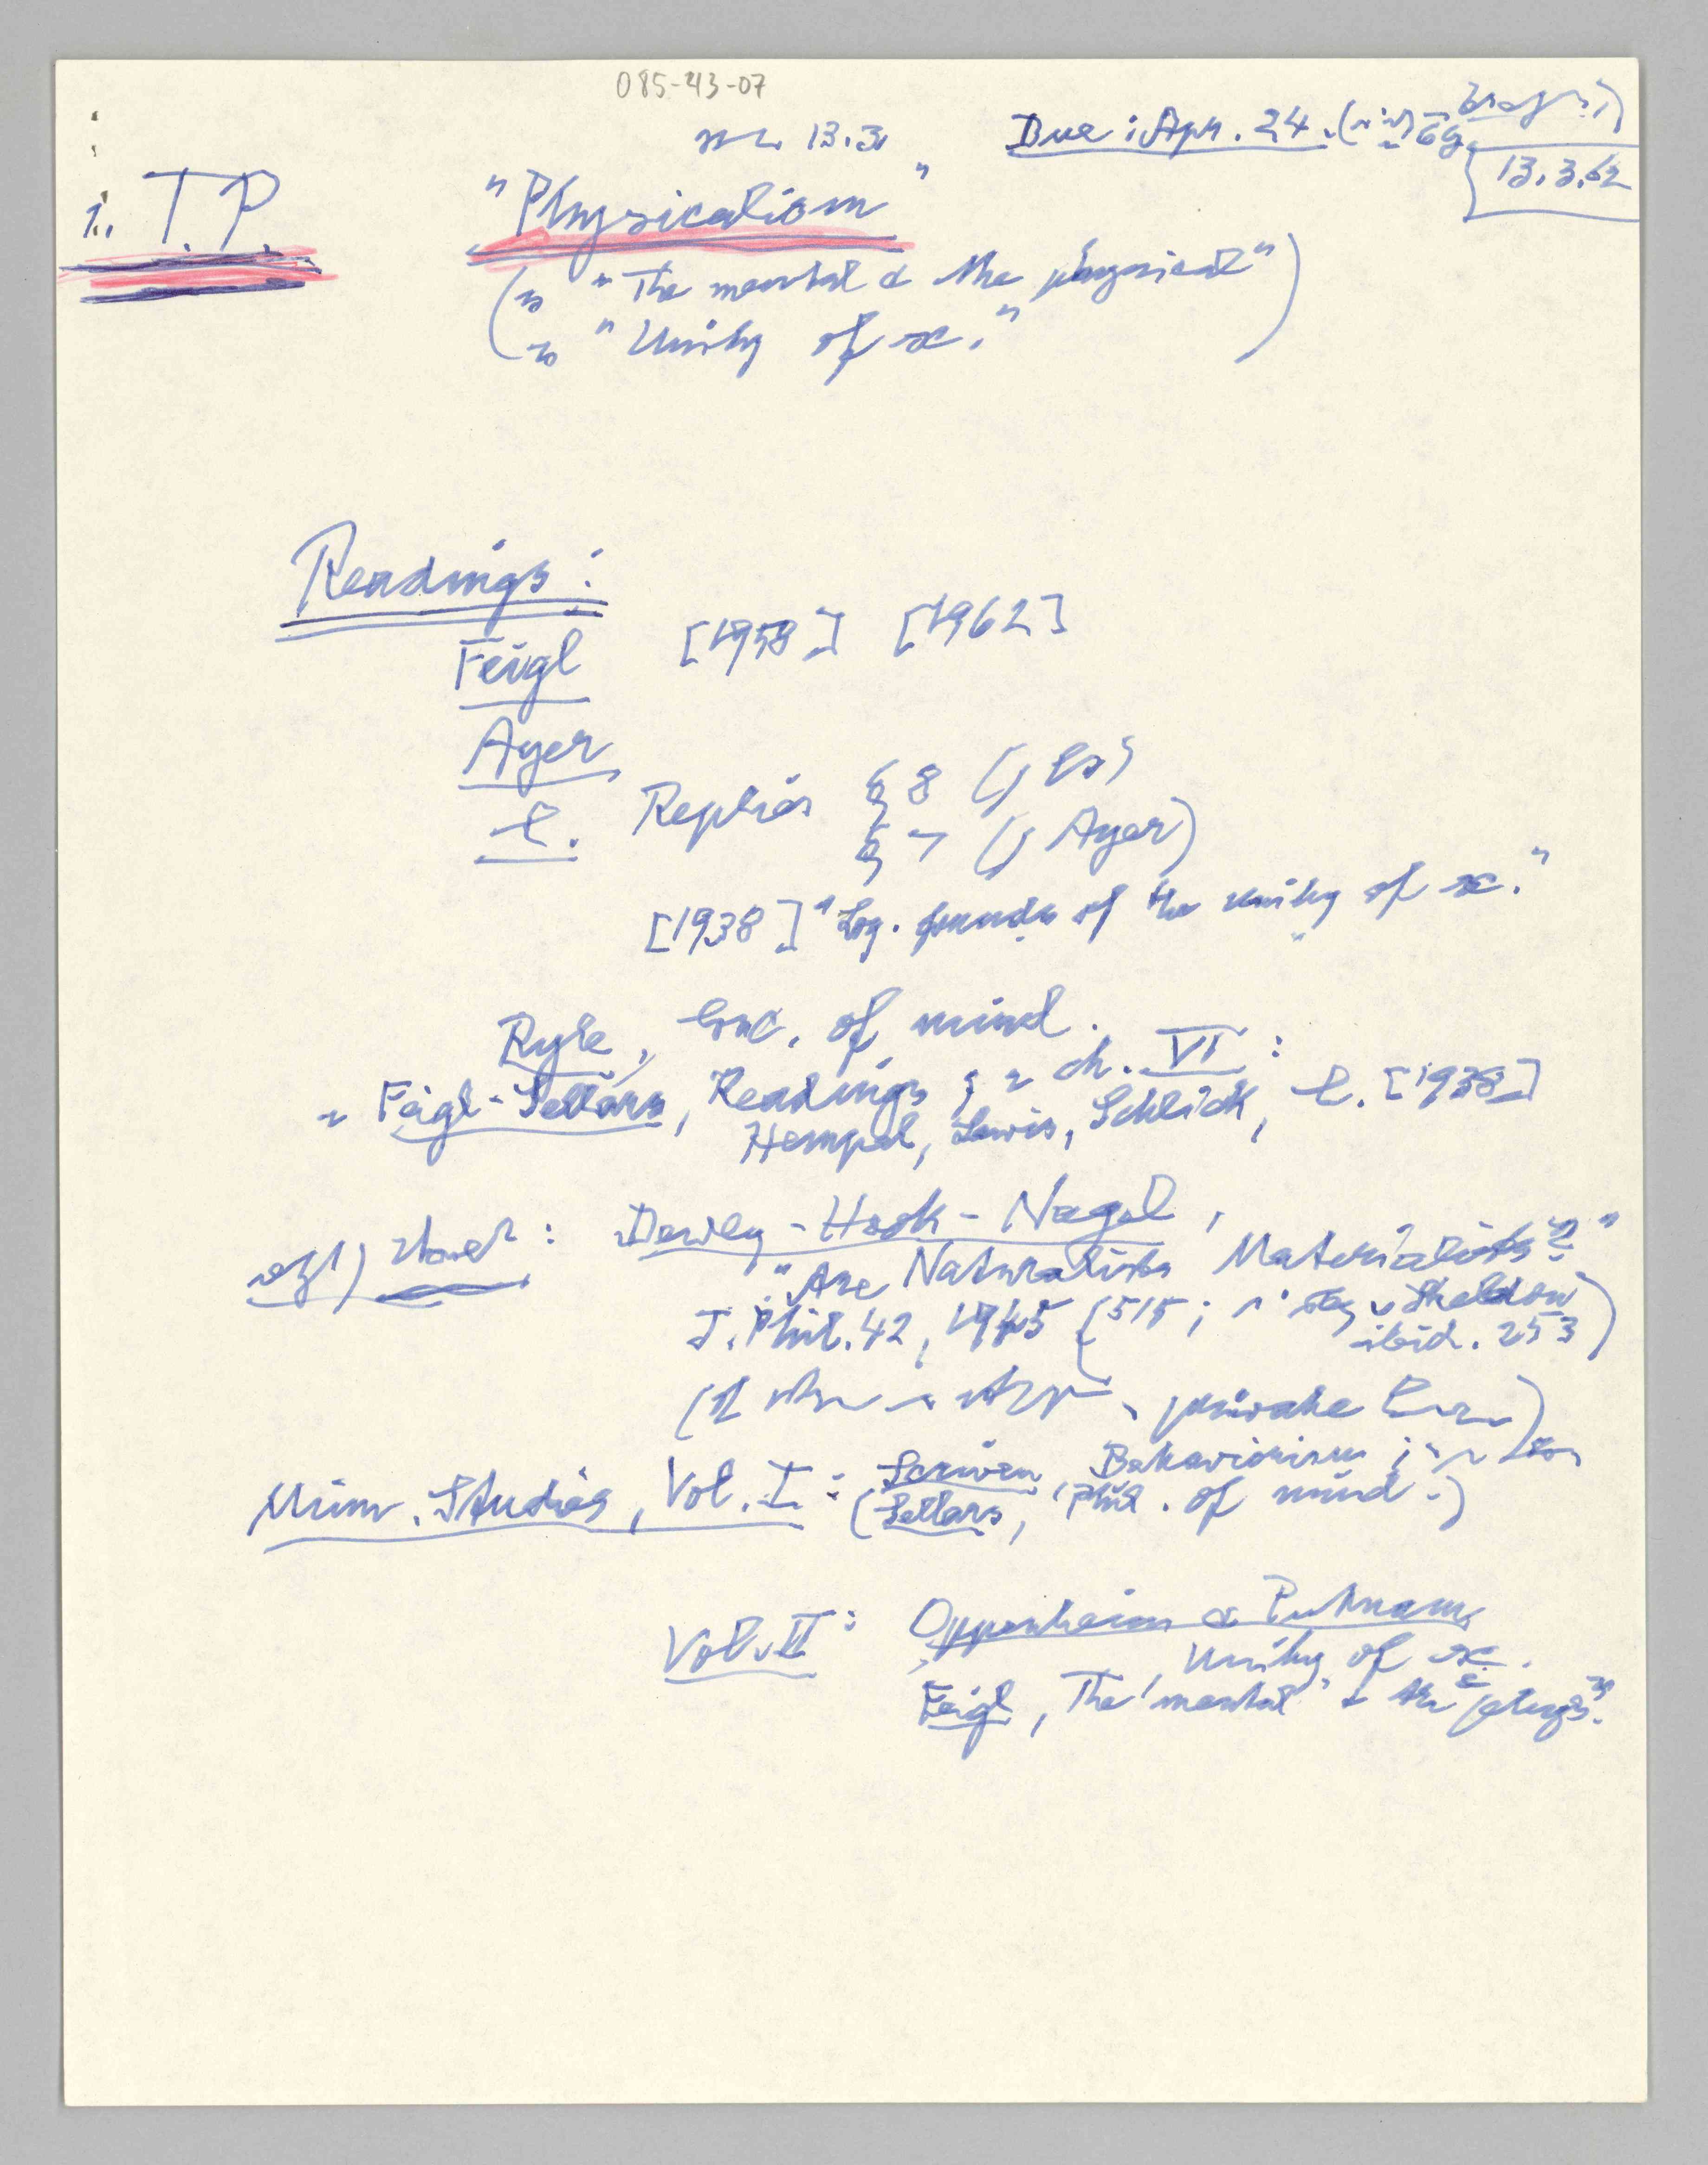 085-43-07
13.3.
Due: Apr. 24.
13.3.62
1. T.P.
"Physicalism"
( "The mental & the physical"
"Unity of sc." )
Readings:
Feigl [1958] [1962]
Ayer
C. Replies § 8
§ 7 ( Ayer)
[1938] "Log. founds of the unity of sc."
Ryle, Conc. of mind.
Feigl-Sellars, Readings; ch. VI:
Hempel, Lewis, Schlick, C. [1938]
Dewey-Hook-Nagel,
"Are Naturalists Materialists?"
J. Phil. 42, 1945 (515; Sheldon
ibid. 253)
private
Minn. Studies, Vol. I: Scriven, Behaviorism;
(Sellars, Phil. of mind.)
Vol. II: Oppenheim & Putnam,
Unity of sc.
Feigl, The 'mental' & the 'phys.'